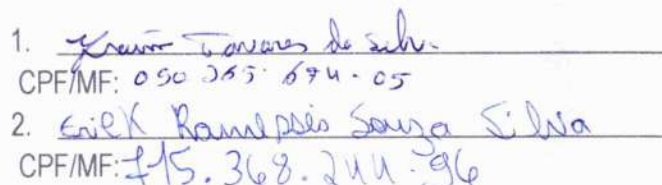 1. Tavares da Silva
CPF/MF: 090 365 694-05
2. Erick Ramessés Souza Silva
CPF/MF: 715.368.244-96